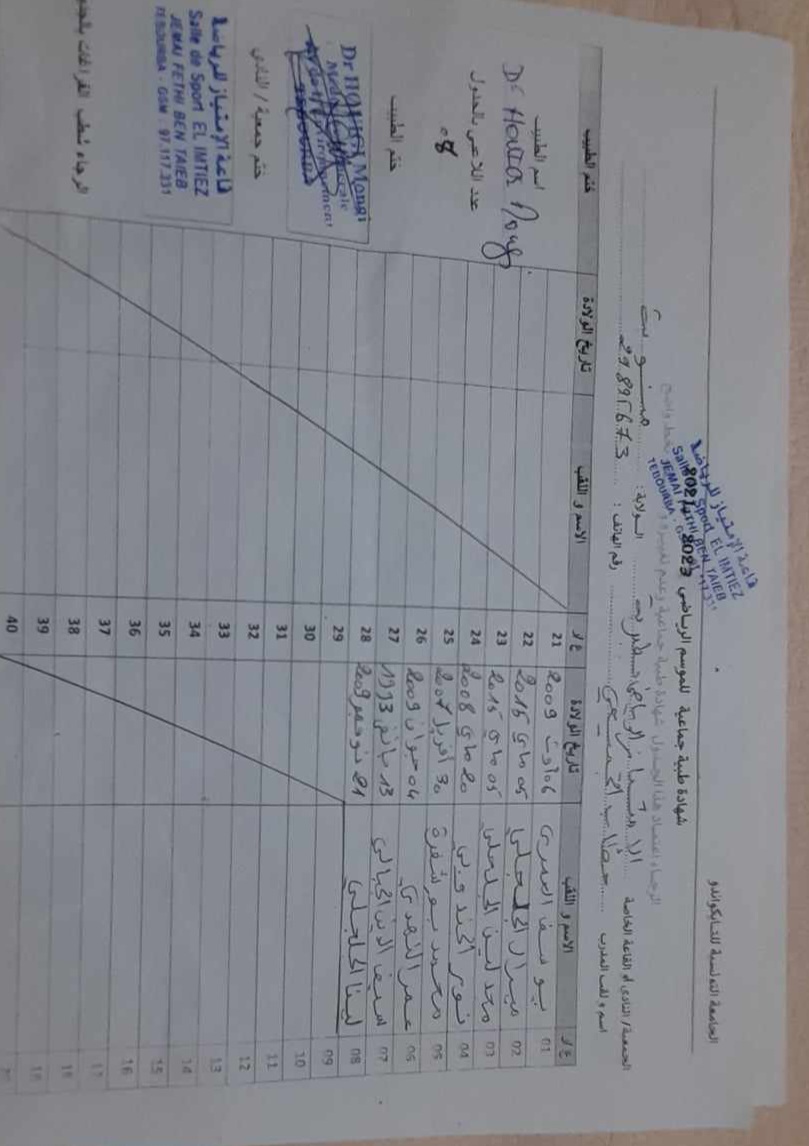 الجامعة التونسية للتايكواندو
شهادة طبية جماعية للموسم الرياضي 2023-2024
قاعة الإمتياز للرياضة
Salle de Sport EL IMTIEZ
JEMAI FETHI BEN TAIEB
TEBOURBA
الرجاء اعتماد هذا الجدول شهادة طبية جماعية وعدم تغييره و بخط واضح
الجمعية/ النادي أو القاعة الخاصة الولاية: منوبة
اسم و لقب المدرب رقم الهاتف: 29.895.673
ع/ر الاسم و اللقب تاريخ الولادة ع/ر الاسم و اللقب تاريخ الولادة ختم الطبيب
01 يوسف العمري 06 أوت 2009 21
02 ميرال الخلجلي 05 ماي 2015 22
03 محمد لمين الخلجلي 05 ماي 2015 23
04 نور الجندوبي 20 ماي 2008 24
05 محمد بوشفرة 30 أفريل 2007 25
06 عمر النهدي 04 جوان 2009 26
07 سيف الدين الجبالي 13 جانفي 1993 27
08 لينا الخلجلي 21 نوفمبر 2009 28
09 29
10 30
11 31
12 32
13 33
14 34
15 35
16 36
17 37
18 38
19 39
20 40
اسم الطبيب
Dr Houas Mongi
عدد اللاعبين بالجدول
08
ختم الطبيب
Dr HOUAS Mongi
ختم جمعية / النادي
قاعة الإمتياز للرياضة
Salle de Sport EL IMTIEZ
JEMAI FETHI BEN TAIEB
TEBOURBA - GSM : 97.117.331
الرجاء شطب الفراغات